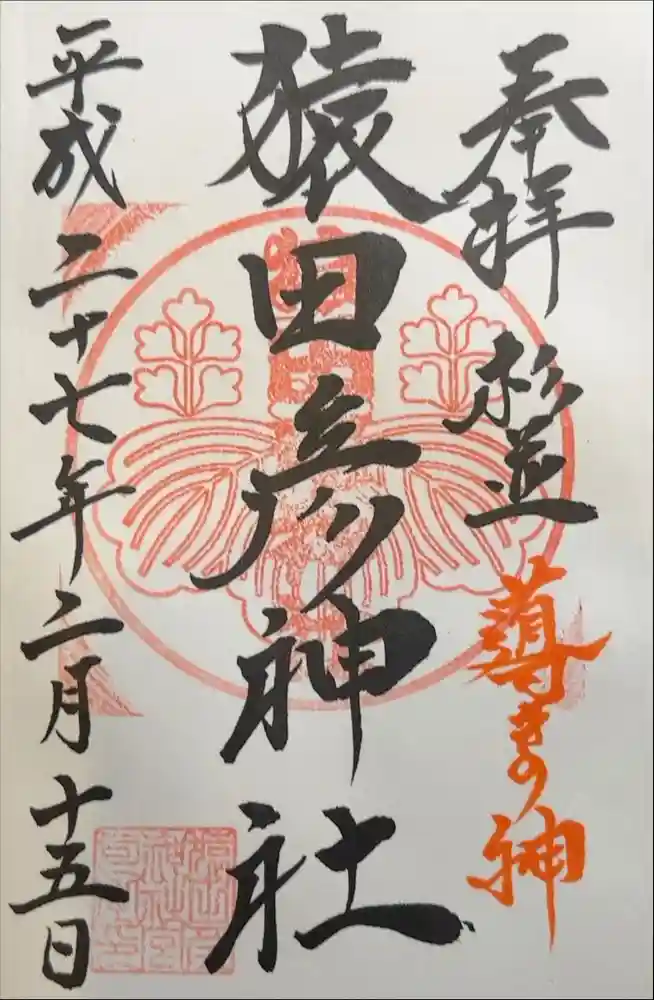 奉拝 杉並 導きの神
猿田彦神社
平成二十七年二月十五日